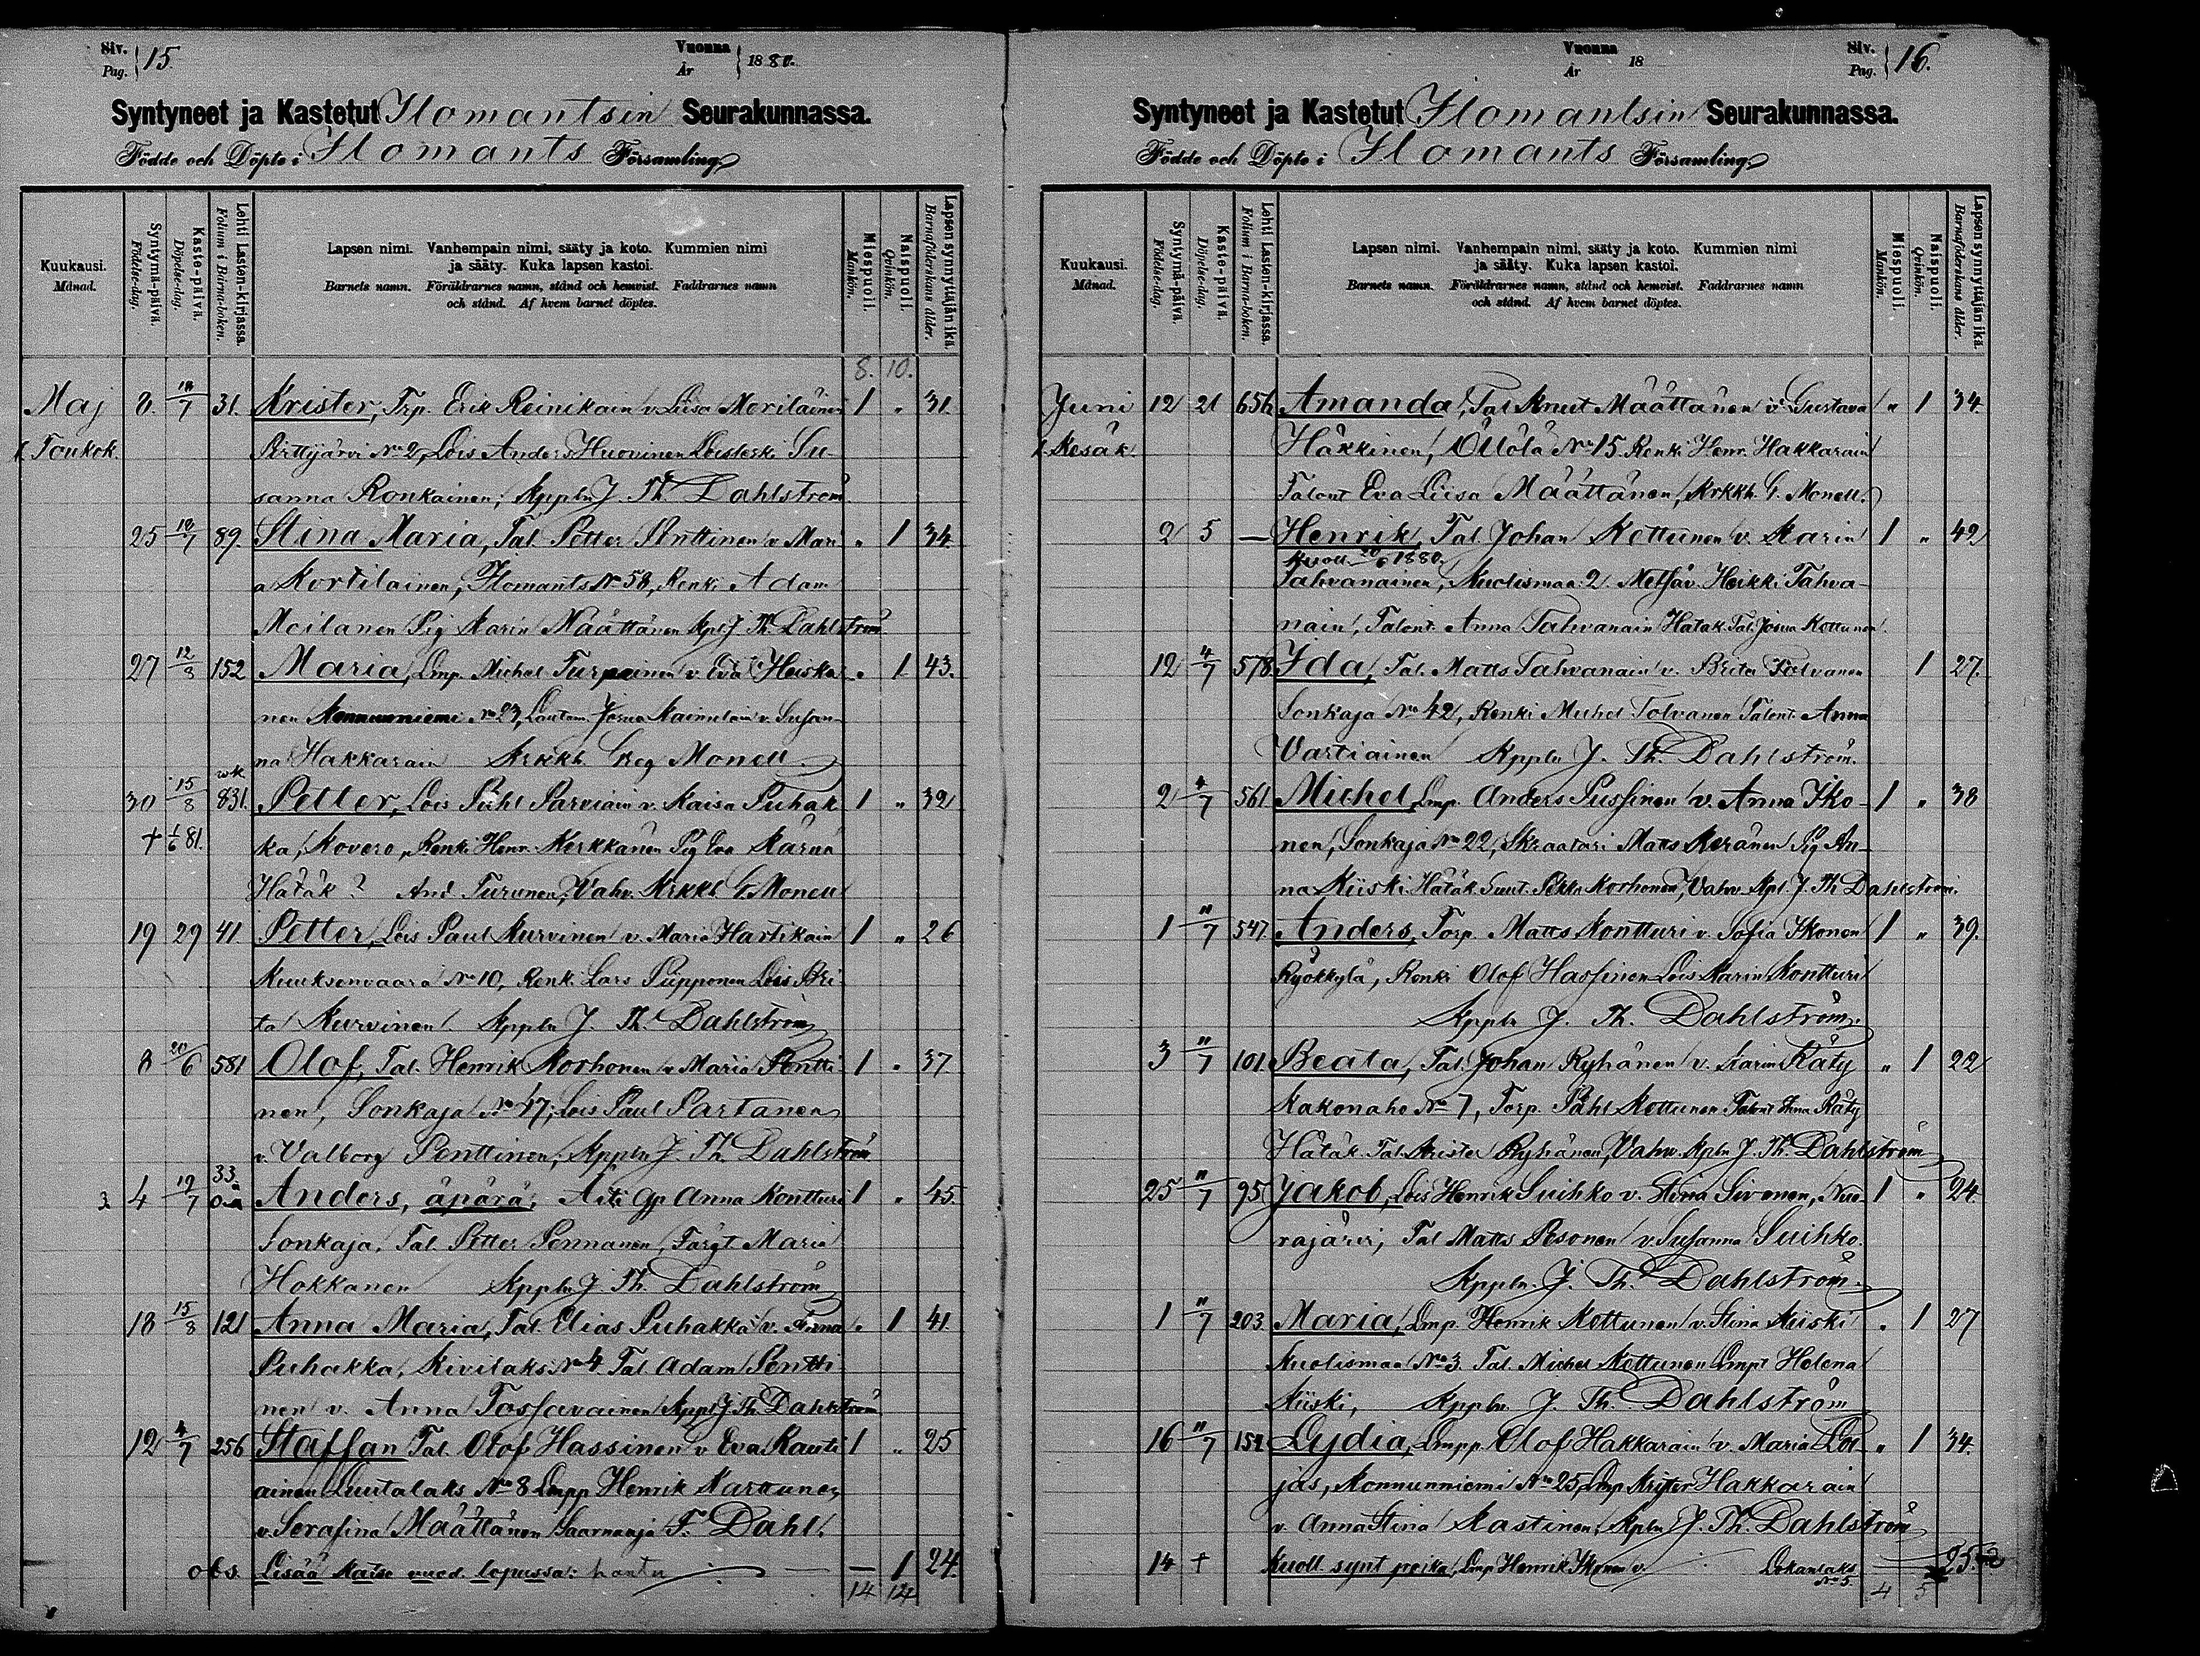 Siv.
Pag. 15.
Vuonna
År 1880.
Syntyneet ja Kastetut Ilomantsin Seurakunnassa.
Födde och Döpte i Ilomants Församling
Kuukausi.
Månad.
Syntymä-päivä.
Födelse-dag.
Kaste-päivä.
Döpelse-dag.
Lehti Lasten-kirjassa.
Folium i Barna-boken.
Lapsen nimi. Vanhempain nimi, sääty ja koto. Kummien nimi
ja sääty. Kuka lapsen kastoi.
Barnets namn. Föräldrarnes namn, stånd och hemvist. Faddrarnes namn
och stånd. Af hvem barnet döptes.
Miespuoli.
Mankön.
Naispuoli.
Qvinkön.
Lapsen synnyttäjän ikä.
Barnaföderskans ålder.
8. 10.
Maj 8. 18/7 31. Krister, Trp. Erik Reinikain v. Liisa Meriläinen 1 " 31.
l. Toukok. Pirttijärvi No 2, Lois Anders Huovinen Loisleski Su-
sanna Ronkainen; Kppln J. Th. Dahlström
25 18/7 89. Stina Maria, Tal. Petter Penttinen v. Mari " 1 34.
a Kortilainen, Ilomants No 58, Renki Adam
Moilanen Pig Karin Määttänen Kpl J. Th. Dahlström
27 12/8 152 Maria, Lmp. Michel Turpeinen v. Eva Heiska " 1 43.
nen Konnunniemi No 23, Lautam. Josua Kainulain v. Susan-
na Hakkarain Krkkh. Greg Monell.
30 15/8 wk 831. Petter, Lois Påhl Parviain v. Kaisa Puhak 1 " 32
+ 1/6 81. ka, Kovero, Renki Henr. Kerkkänen Pig Eva Kärnä
Hätäk? And Turunen, Vahv. Krkkh. G. Monell
19 29 41 Petter, Lois Paul Kurvinen v. Maria Hartikain 1 " 26
Kuuksenvaara No 10, Renki Lars Piipponen Lois Bri
ta Kurvinen. Kppln J. Th. Dahlström
8 20/6 581 Olof, Tal. Henrik Korhonen v. Maria Pentti 1 " 37
nen, Sonkaja No 47, Lois Paul Partanen
v. Valborg Penttinen, Kppln J. Th. Dahlström
4 19/7 33 Anders, äpärä; Äiti Anna Kontturi 1 " 45.
Sonkaja. Tal. Petter Pennanen, Maria
Hokkanen Kppln J. Th. Dahlström
18 15/8 121 Anna Maria, Tal. Elias Puhakka v. Anna " 1 41.
Puhakka, Kivilaks No 4 Tal. Adam Pentti
nen v. Anna Tossavainen Kppl J. Th. Dahlström
12 4/7 256 Staffan Tal. Olof Hassinen v Eva Rauti 1 " 25
ainen Luutalaks No 8 Lmpp Henrik Karttunen
v. Serafina Määttänen Saarnaaja F. Dahl.
obs. Lisää Katso vuod. lopussa: — 1 24.
14 14
Vuonna
År 18
Siv.
Pag. 16.
Syntyneet ja Kastetut Ilomantsin Seurakunnassa.
Födde och Döpte i Ilomants Församling
Kuukausi.
Månad.
Syntymä-päivä.
Födelse-dag.
Kaste-päivä.
Döpelse-dag.
Lehti Lasten-kirjassa.
Folium i Barna-boken.
Lapsen nimi. Vanhempain nimi, sääty ja koto. Kummien nimi
ja sääty. Kuka lapsen kastoi.
Barnets namn. Föräldrarnes namn, stånd och hemvist. Faddrarnes namn
och stånd. Af hvem barnet döptes.
Miespuoli.
Mankön.
Naispuoli.
Qvinkön.
Lapsen synnyttäjän ikä.
Barnaföderskans ålder.
Juni 12 21 656 Amanda, Tal Knut Määttänen v. Gustava " 1 34.
l. Kesäk. Häkkinen, Öllölä No 15. Renki Henr. Hakkarain
Talont Eva Liisa Määttänen, Krkkh. G. Monell.
2 5 — Henrik, Tal. Johan Kottunen v. Karin 1 " 42
Kuoll. 20/6 1880.
Tahvanainen, Kuolismaa 2. Metsäv. Heikki Tahva-
nain, Talont Anna Tahvanain Hätäk. Tal. Josua Kottunen.
12 4/7 578 Ida, Tal. Matts Tahvanain v. Brita Tolvanen 1 27.
Sonkaja No 42, Renki Michel Tolvanen Talont. Anna
Vartiainen Kppln J. Th. Dahlström.
2 4/7 561 Michel, Lmp. Anders Pussinen v. Anna Iko- 1 " 38
nen, Sonkaja No 22, Skraatari Matts Keränen Pig An-
na Kiiski Hätäk. Suut. Pekka Korhonen, Vahv Kpl. J. Th Dahlström.
1 11/7 547 Anders, Torp. Matts Kontturi v. Sofia Ikonen 1 " 39.
Ryökkylä, Renki Olof Hassinen Lois Karin Kontturi
Kppln J. Th. Dahlström.
3 11/7 101. Beata, Tal. Johan Ryhänen v. Karin Räty " 1 22
Kakonaho No 7, Torp. Påhl Kottunen Talont Anna Räty
Hätäk. Tal. Krister Ryhänen, Vahv. Kpln J. Th. Dahlström
25 11/7 95 Jakob, Lois Henrik Suihko v. Stina Sivonen, Nuo- 1 " 24
rajärvi; Tal Matts Pesonen v. Susanna Suihko.
Kppln. J. Th. Dahlström.
1 11/7 203. Maria, Lmp. Henrik Kottunen v. Stina Kiiski " 1 27
Kuolismaa No 3. Tal. Michel Kottunen Lmpt Helena
Kiiski, Kppln. J. Th. Dahlström
16 11/7 151. Lydia, Lmpp. Olof Hakkarain v. Maria Loi " 1 34.
jas, Konnunniemi No 25, Lmp. Krister Hakkarain
v. Anna Stina Kastinen, Kpln J. Th. Dahlström
14 + Kuoll. synt poika, Lmp. Henrik Ikonen v. Lokanlaks No 5. 25.
4 5